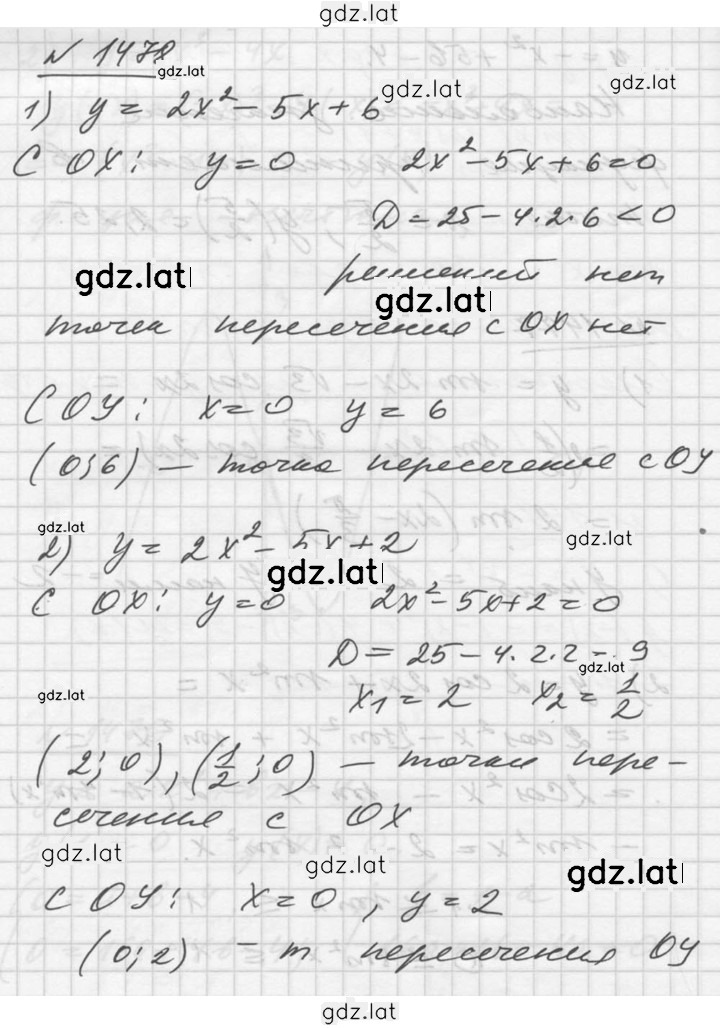 gdz.lat
N 1478
gdz.lat
1) y = 2x² − 5x + 6
gdz.lat
gdz.lat
С ОХ: y = 0   2x² − 5x + 6 = 0
D = 25 − 4·2·6 < 0
gdz.lat
решений нет
gdz.lat
точек пересечения с ОХ нет
С ОУ: x = 0   y = 6
(0; 6) — точка пересечения с ОУ
gdz.lat
gdz.lat
2) y = 2x² − 5x + 2
gdz.lat
С ОХ: y = 0   2x² − 5x + 2 = 0
D = 25 − 4·2·2 = 9
gdz.lat
gdz.lat
x₁ = 2   x₂ = 1/2
(2; 0), (1/2; 0) — точки пере-
сечения с ОХ
gdz.lat
gdz.lat
gdz.lat
С ОУ: x = 0, y = 2
(0; 2) — т пересечения ОУ
gdz.lat